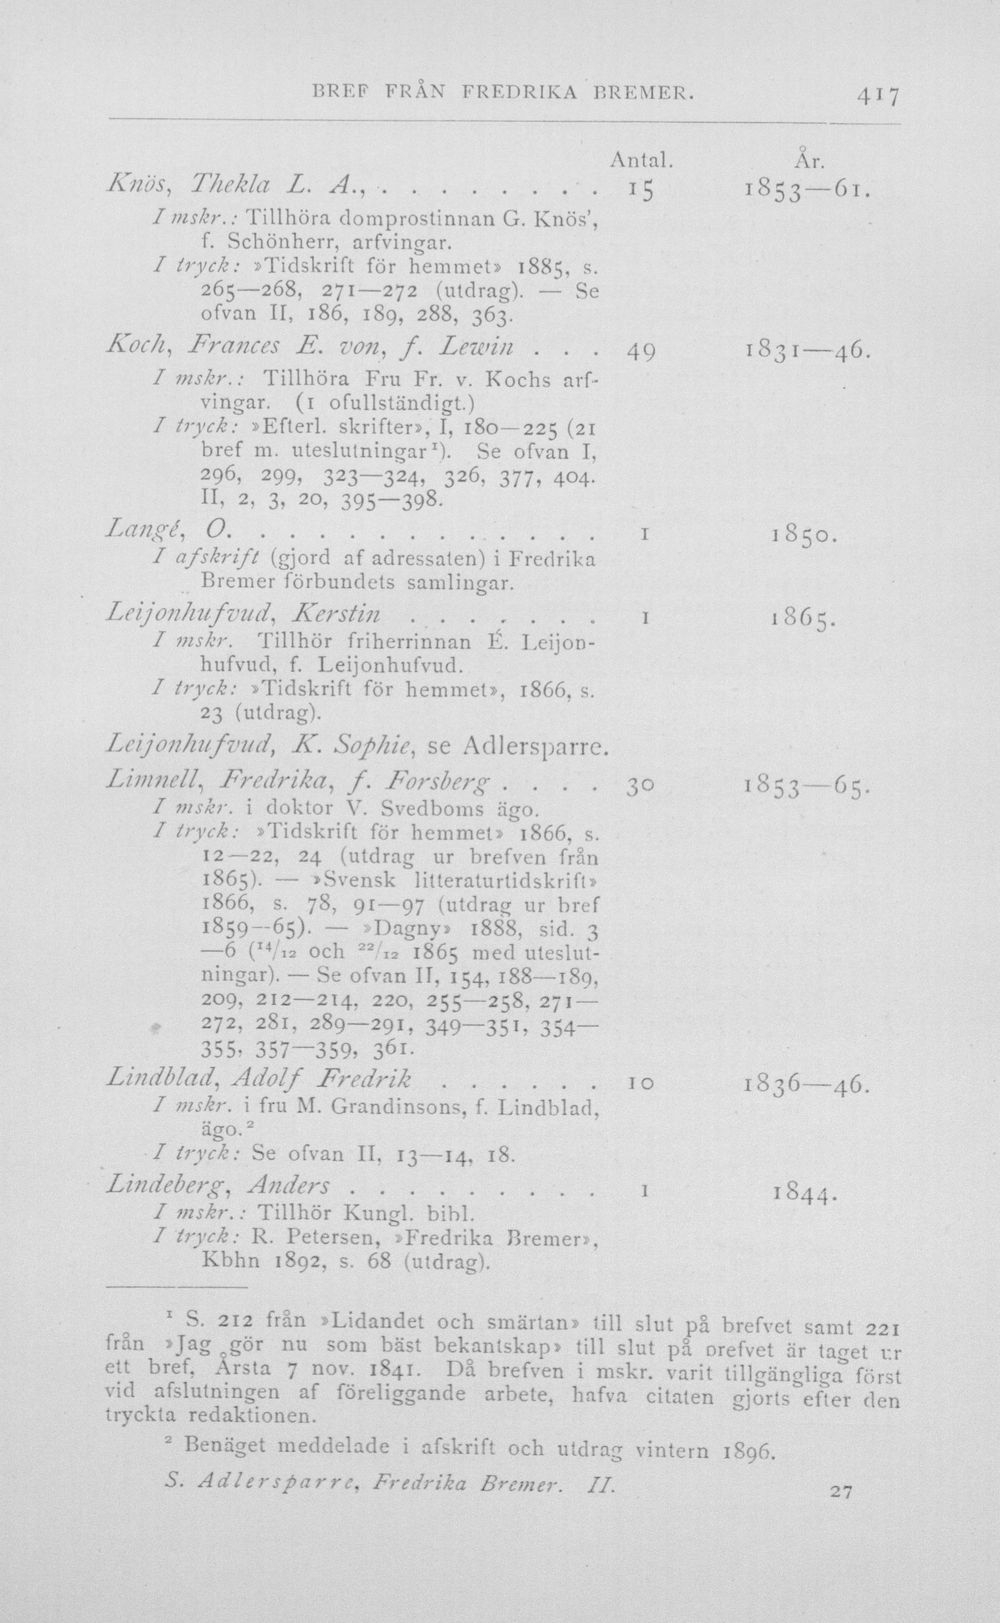 BREF FRÅN FREDRIKA BREMER. 417
Antal. År.
Knös, Thekla L. A., . . . . . . . . 15 1853—61.
I mskr.: Tillhöra domprostinnan G. Knös',
f. Schönherr, arfvingar.
I tryck: »Tidskrift för hemmet» 1885, s.
265—268, 271—272 (utdrag). — Se
ofvan II, 186, 189, 288, 363.
Koch, Frances E. von, f. Lewin . . . 49 1831—46.
I mskr.: Tillhöra Fru Fr. v. Kochs arf-
vingar. (1 ofullständigt.)
I tryck: »Efterl. skrifter», I, 180—225 (21
bref m. uteslutningar¹). Se ofvan I,
296, 299, 323—324, 326, 377, 404.
II, 2, 3, 20, 395—398.
Langé, O. . . . . . . . . . . . . 1 1850.
I afskrift (gjord af adressaten) i Fredrika
Bremer förbundets samlingar.
Leijonhufvud, Kerstin . . . . . . . 1 1865.
I mskr. Tillhör friherrinnan É. Leijon-
hufvud, f. Leijonhufvud.
I tryck: »Tidskrift för hemmet», 1866, s.
23 (utdrag).
Leijonhufvud, K. Sophie, se Adlersparre.
Limnell, Fredrika, f. Forsberg . . . . 30 1853—65.
I mskr. i doktor V. Svedboms ägo.
I tryck: »Tidskrift för hemmet» 1866, s.
12—22, 24 (utdrag ur brefven från
1865). — »Svensk litteraturtidskrift»
1866, s. 78, 91—97 (utdrag ur bref
1859—65). — »Dagny» 1888, sid. 3
—6 (¹⁴/₁₂ och ²²/₁₂ 1865 med uteslut-
ningar). — Se ofvan II, 154, 188—189,
209, 212—214, 220, 255—258, 271—
272, 281, 289—291, 349—351, 354—
355, 357—359, 361.
Lindblad, Adolf Fredrik . . . . . . 10 1836—46.
I mskr. i fru M. Grandinsons, f. Lindblad,
ägo.²
I tryck: Se ofvan II, 13—14, 18.
Lindeberg, Anders . . . . . . . . . 1 1844.
I mskr.: Tillhör Kungl. bibl.
I tryck: R. Petersen, »Fredrika Bremer»,
Kbhn 1892, s. 68 (utdrag).
¹ S. 212 från »Lidandet och smärtan» till slut på brefvet samt 221
från »Jag gör nu som bäst bekantskap» till slut på brefvet är taget ur
ett bref, Årsta 7 nov. 1841. Då brefven i mskr. varit tillgängliga först
vid afslutningen af föreliggande arbete, hafva citaten gjorts efter den
tryckta redaktionen.
² Benäget meddelade i afskrift och utdrag vintern 1896.
S. Adlersparre, Fredrika Bremer. II. 27